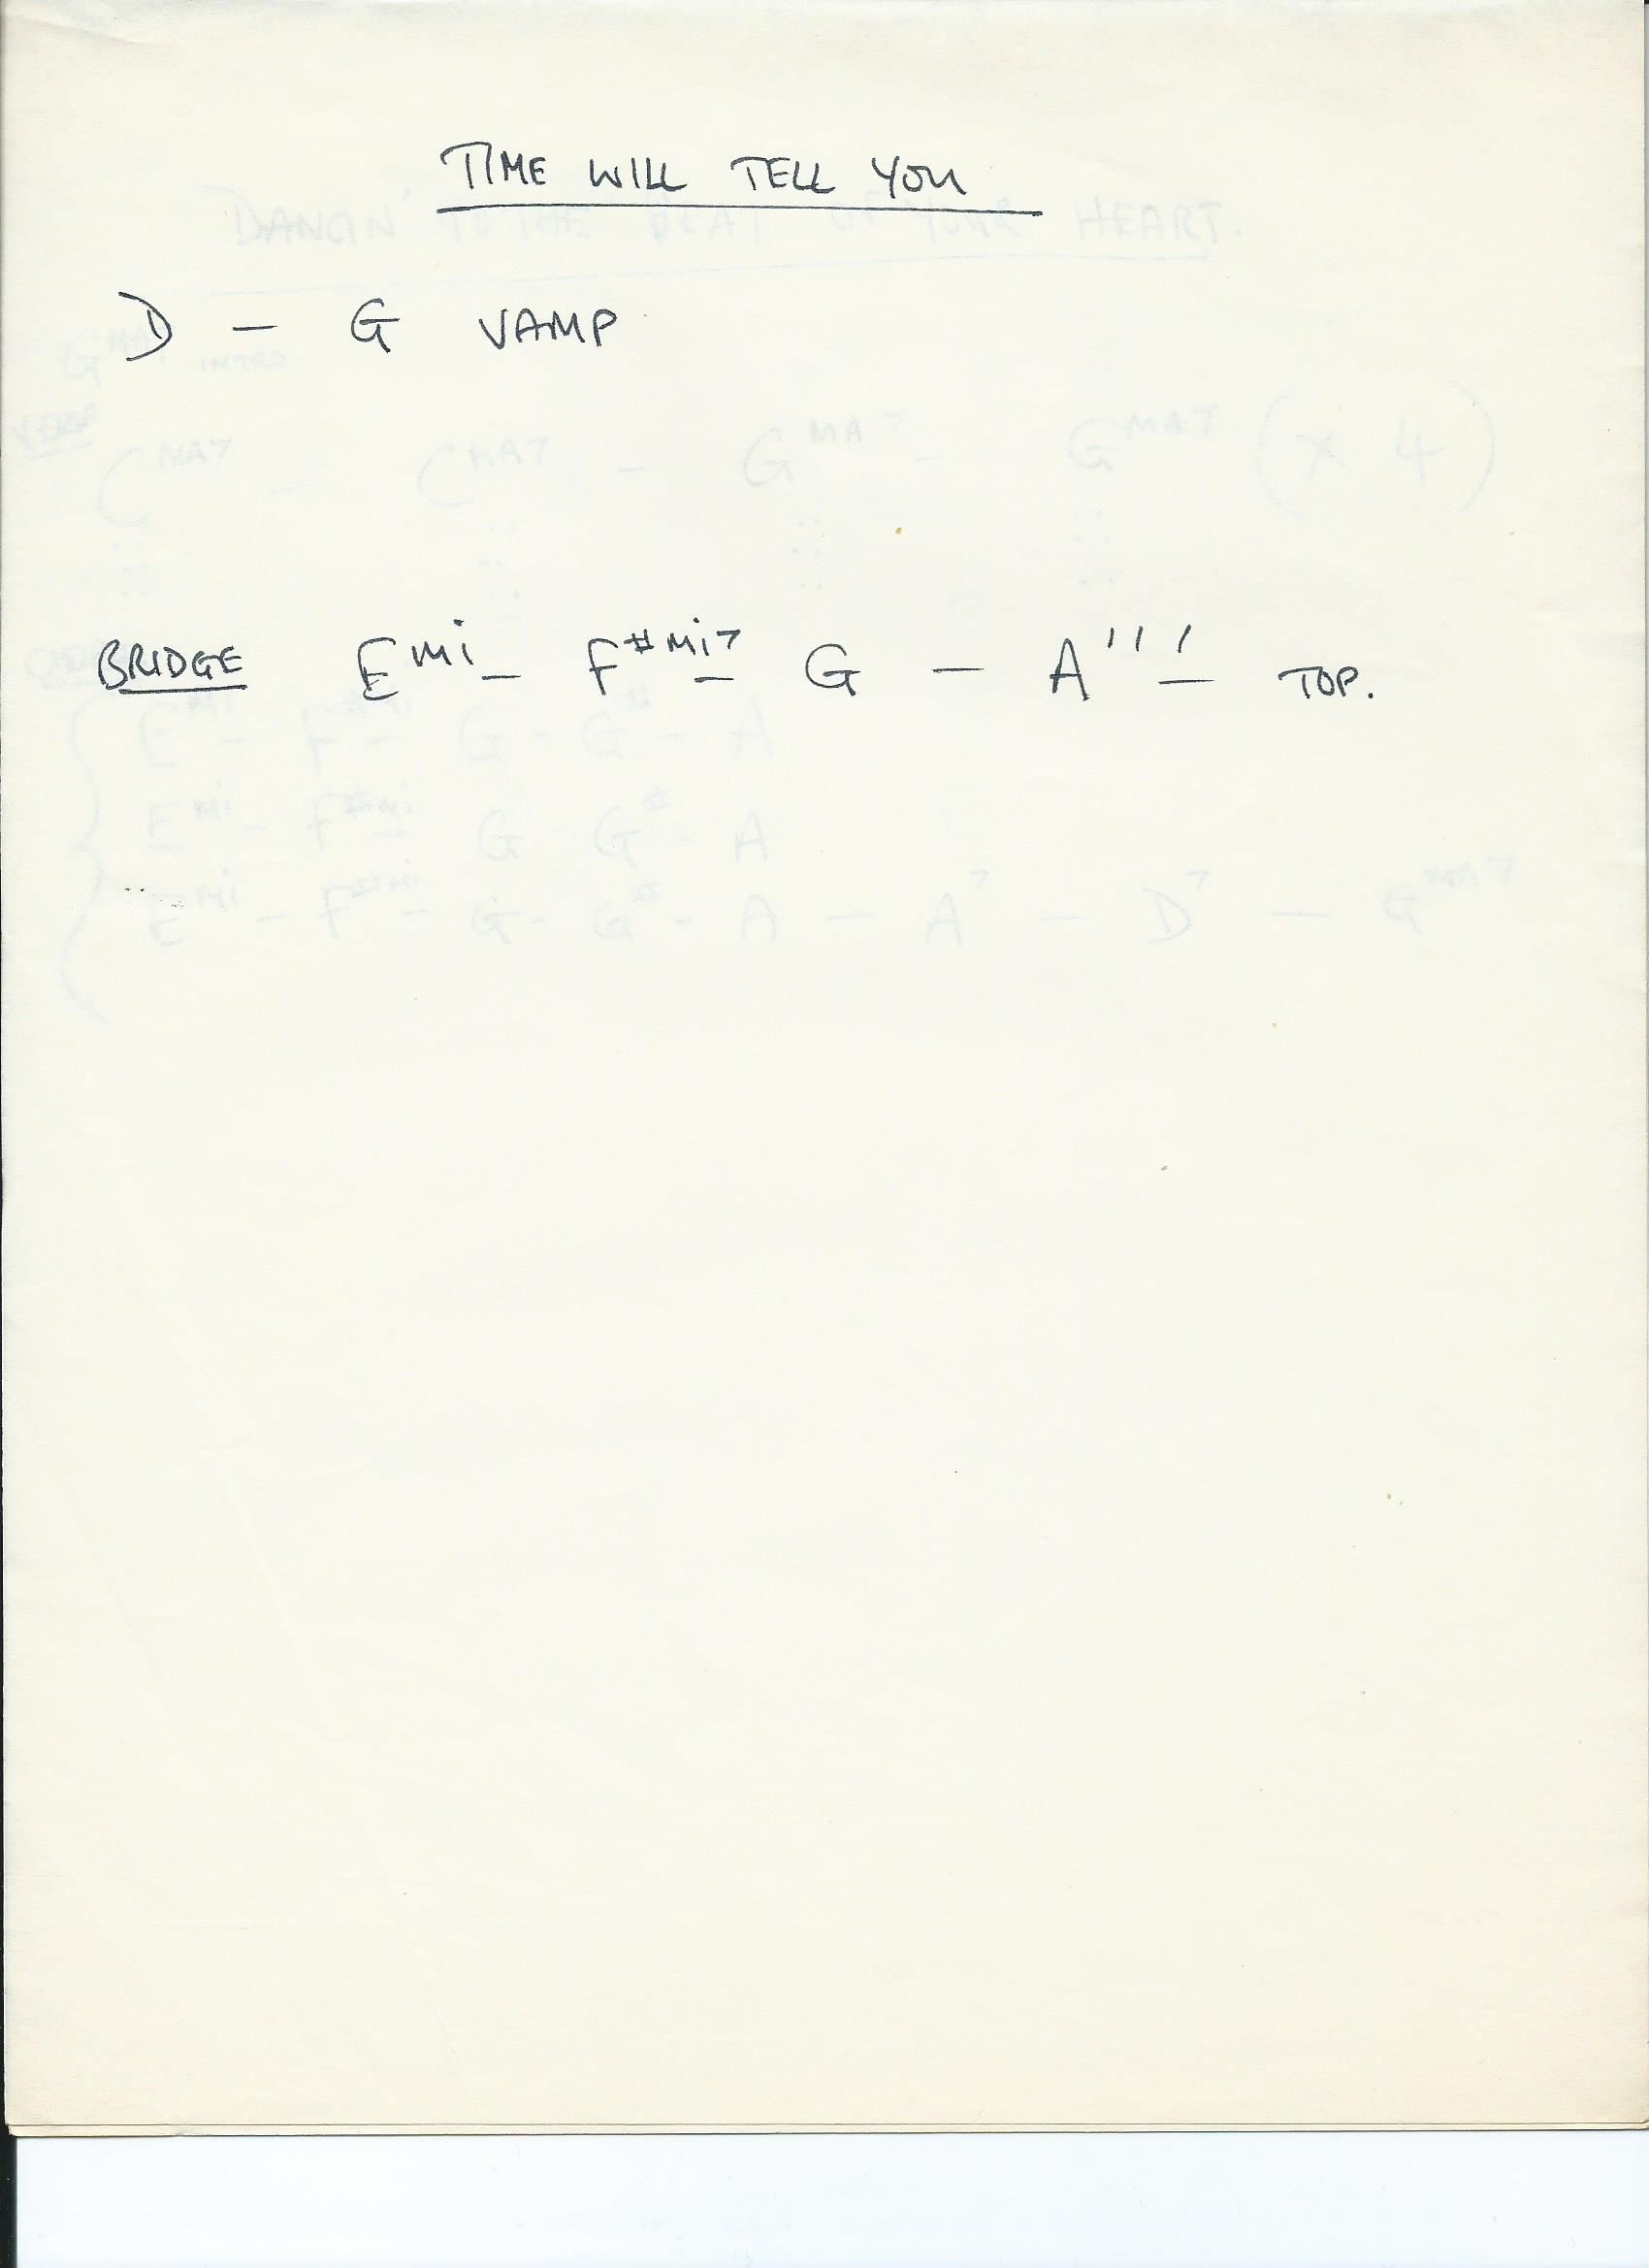 TIME WILL TELL YOU
DANCIN' TO THE BEAT OF YOUR HEART.
D – G VAMP
G MA7 INTRO
VERSE
C MA7 – C MA7 – G MA7 – G MA7 (x 4)
BRIDGE E mi – F #mi7 – G – A ''' – TOP.
E mi – F #mi – G – G# – A
E mi – F #mi – G – G# – A
E mi – F #mi – G – G# – A – A7 – D7 – G MA7